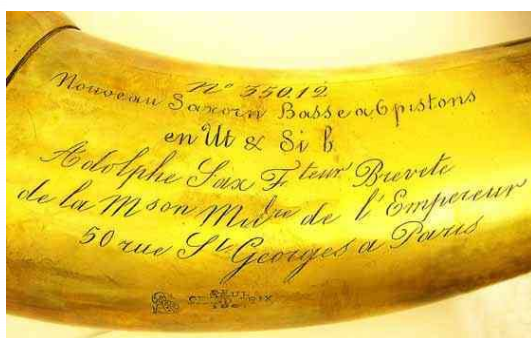 Nº 35012
Nouveau Saxorn Basse a 6 pistons
en Ut & Si b
Adolphe Sax Fteur Brevete
de la Mson Milre de l'Empereur
50 rue St Georges a Paris
SEUL